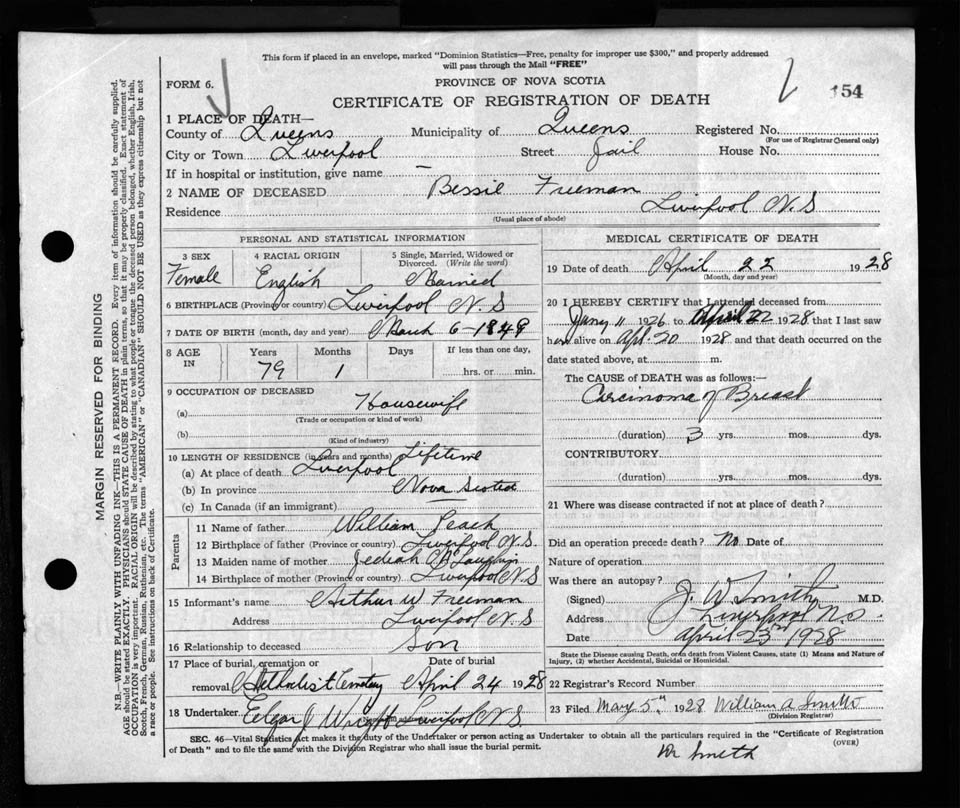 This form if placed in an envelope, marked "Dominion Statistics—Free, penalty for improper use $300," and properly addressed
will pass through the Mail "FREE"
FORM 6.
PROVINCE OF NOVA SCOTIA
CERTIFICATE OF REGISTRATION OF DEATH
154
1 PLACE OF DEATH—
County of Queens Municipality of Queens Registered No.
(For use of Registrar General only)
City or Town Liverpool Street Jail House No.
If in hospital or institution, give name —
2 NAME OF DECEASED Bessie Freeman
Residence Liverpool N.S
(Usual place of abode)
PERSONAL AND STATISTICAL INFORMATION
3 SEX Female
4 RACIAL ORIGIN English
5 Single, Married, Widowed or Divorced. (Write the word) Married
6 BIRTHPLACE (Province or country) Liverpool N.S
7 DATE OF BIRTH (month, day and year) March 6-1849
8 AGE IN Years 79 Months 1 Days If less than one day, hrs. or min.
9 OCCUPATION OF DECEASED
(a) Housewife
(Trade or occupation or kind of work)
(b)
(Kind of industry)
10 LENGTH OF RESIDENCE (in years and months) Lifetime
(a) At place of death Liverpool
(b) In province Nova Scotia
(c) In Canada (if an immigrant)
Parents
11 Name of father William Leach
12 Birthplace of father (Province or country) Liverpool N.S.
13 Maiden name of mother
14 Birthplace of mother (Province or country) Liverpool N.S
15 Informant's name Arthur W Freeman
Address Liverpool N.S
16 Relationship to deceased Son
17 Place of burial, cremation or removal Methodist Cemetery
Date of burial April 24 1928
18 Undertaker Edgar J Liverpool N.S.
MEDICAL CERTIFICATE OF DEATH
19 Date of death April 22 1928
(Month, day and year)
20 I HEREBY CERTIFY that I attended deceased from
11 1926 to April 22 1928 that I last saw
her alive on Apl. 20 1928 and that death occurred on the
date stated above, at m.
The CAUSE OF DEATH was as follows:—
Carcinoma of Breast
(duration) 3 yrs. mos. dys.
CONTRIBUTORY
(duration) yrs. mos. dys.
21 Where was disease contracted if not at place of death?
Did an operation precede death? No Date of
Nature of operation
Was there an autopsy?
(Signed) J. W Smith M.D.
Address Liverpool N.S
Date April 23rd 1928
State the Disease causing Death, or in death from Violent Causes, state (1) Means and Nature of
Injury, (2) whether Accidental, Suicidal or Homicidal.
22 Registrar's Record Number
23 Filed May 5th 1928 William A Smith
(Division Registrar)
SEC. 46—Vital Statistics Act makes it the duty of the Undertaker or person acting as Undertaker to obtain all the particulars required in the "Certificate of Registration
of Death" and to file the same with the Division Registrar who shall issue the burial permit.
(OVER)
Dr Smith
MARGIN RESERVED FOR BINDING
N.B.—WRITE PLAINLY WITH UNFADING INK—THIS IS A PERMANENT RECORD. Every item of information should be carefully supplied.
AGE should be stated EXACTLY. PHYSICIANS should STATE CAUSE OF DEATH in plain terms, so that it may be properly classified. Exact statement of
OCCUPATION is very important. RACIAL ORIGIN will be described by stating to what people or tongue the deceased person belonged, whether English, Irish,
Scotch, French, German, Russian, Ruthenian, etc. The terms "AMERICAN" or "CANADIAN" SHOULD NOT BE USED as they express citizenship but not
a race or people. See instructions on back of Certificate.